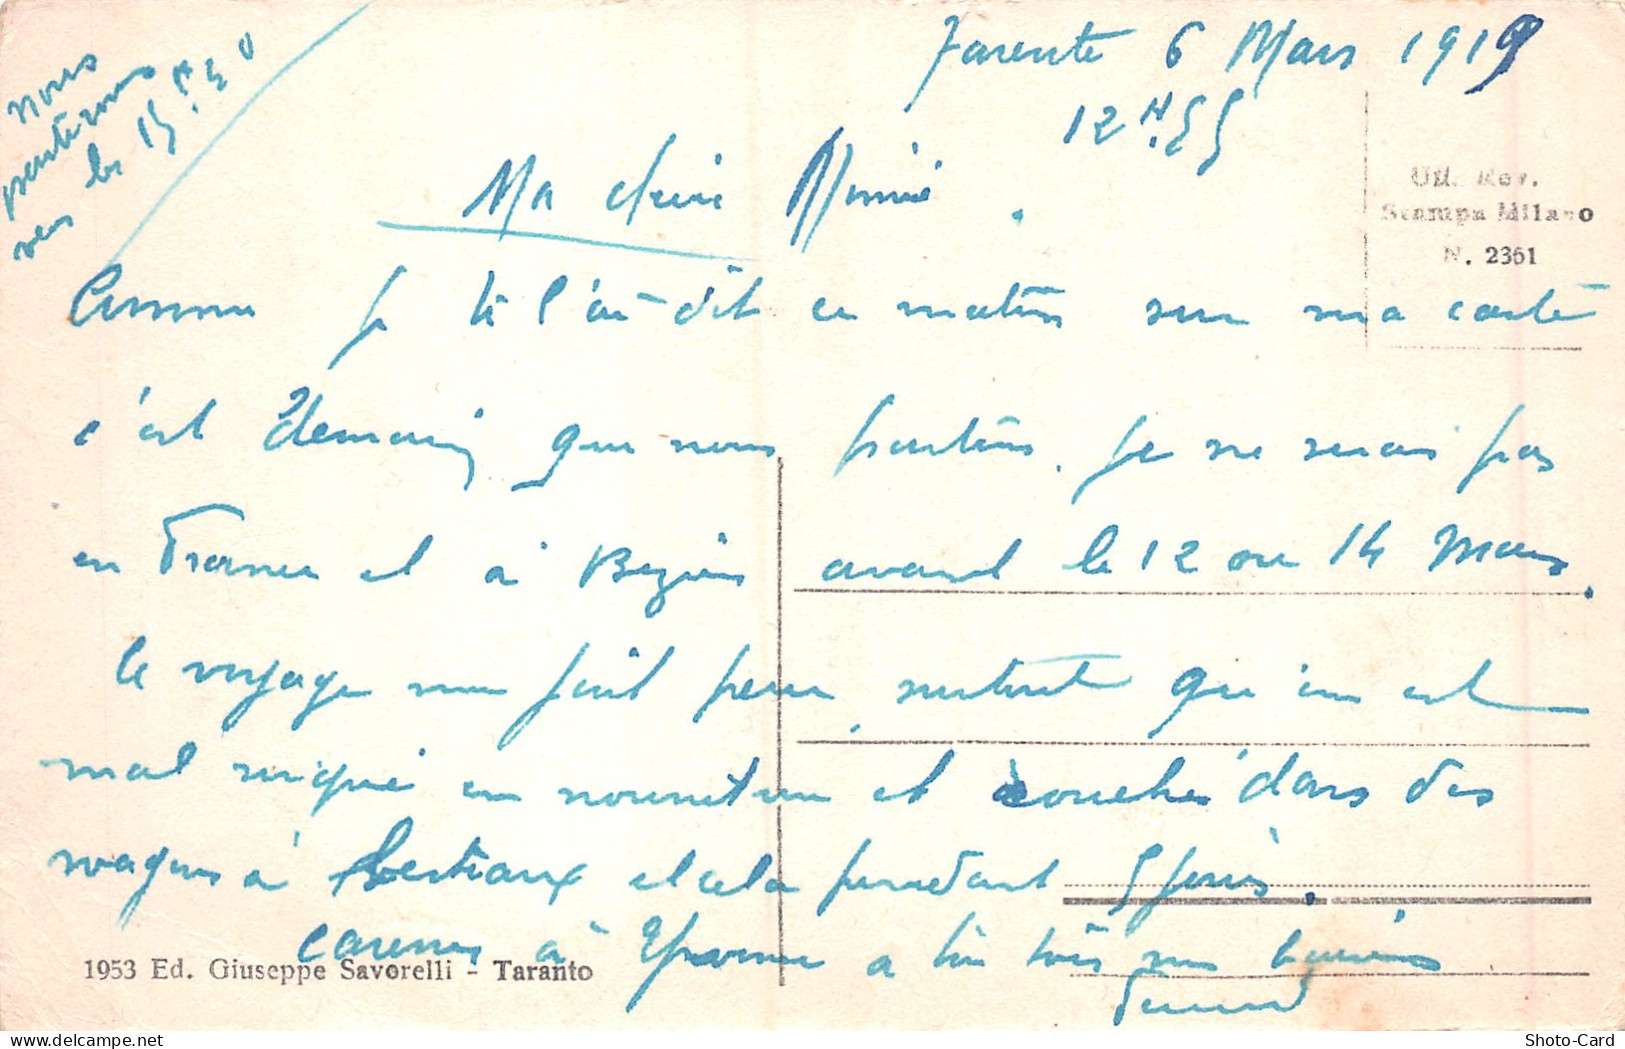 Tarente 6 Mars 1919
12 H. 55
Nous
partirons
vers les 15 H. 30
Ma chérie Mimie.
Comme je te l'ai dit ce matin sur ma carte
c'est demain que nous partons. Je ne serai pas
en France et à Beziers avant le 12 ou 14 Mars.
le voyage me fait peur, surtout qu'on est
mal soigné en nourriture et couché dans des
wagons à bestiaux et cela pendant 5 jours.
caresses à Yvonne à toi tous mes baisers
Uff. Rev.
Stampa Milano
N. 2361
1953 Ed. Giuseppe Savorelli - Taranto
Shoto-Card